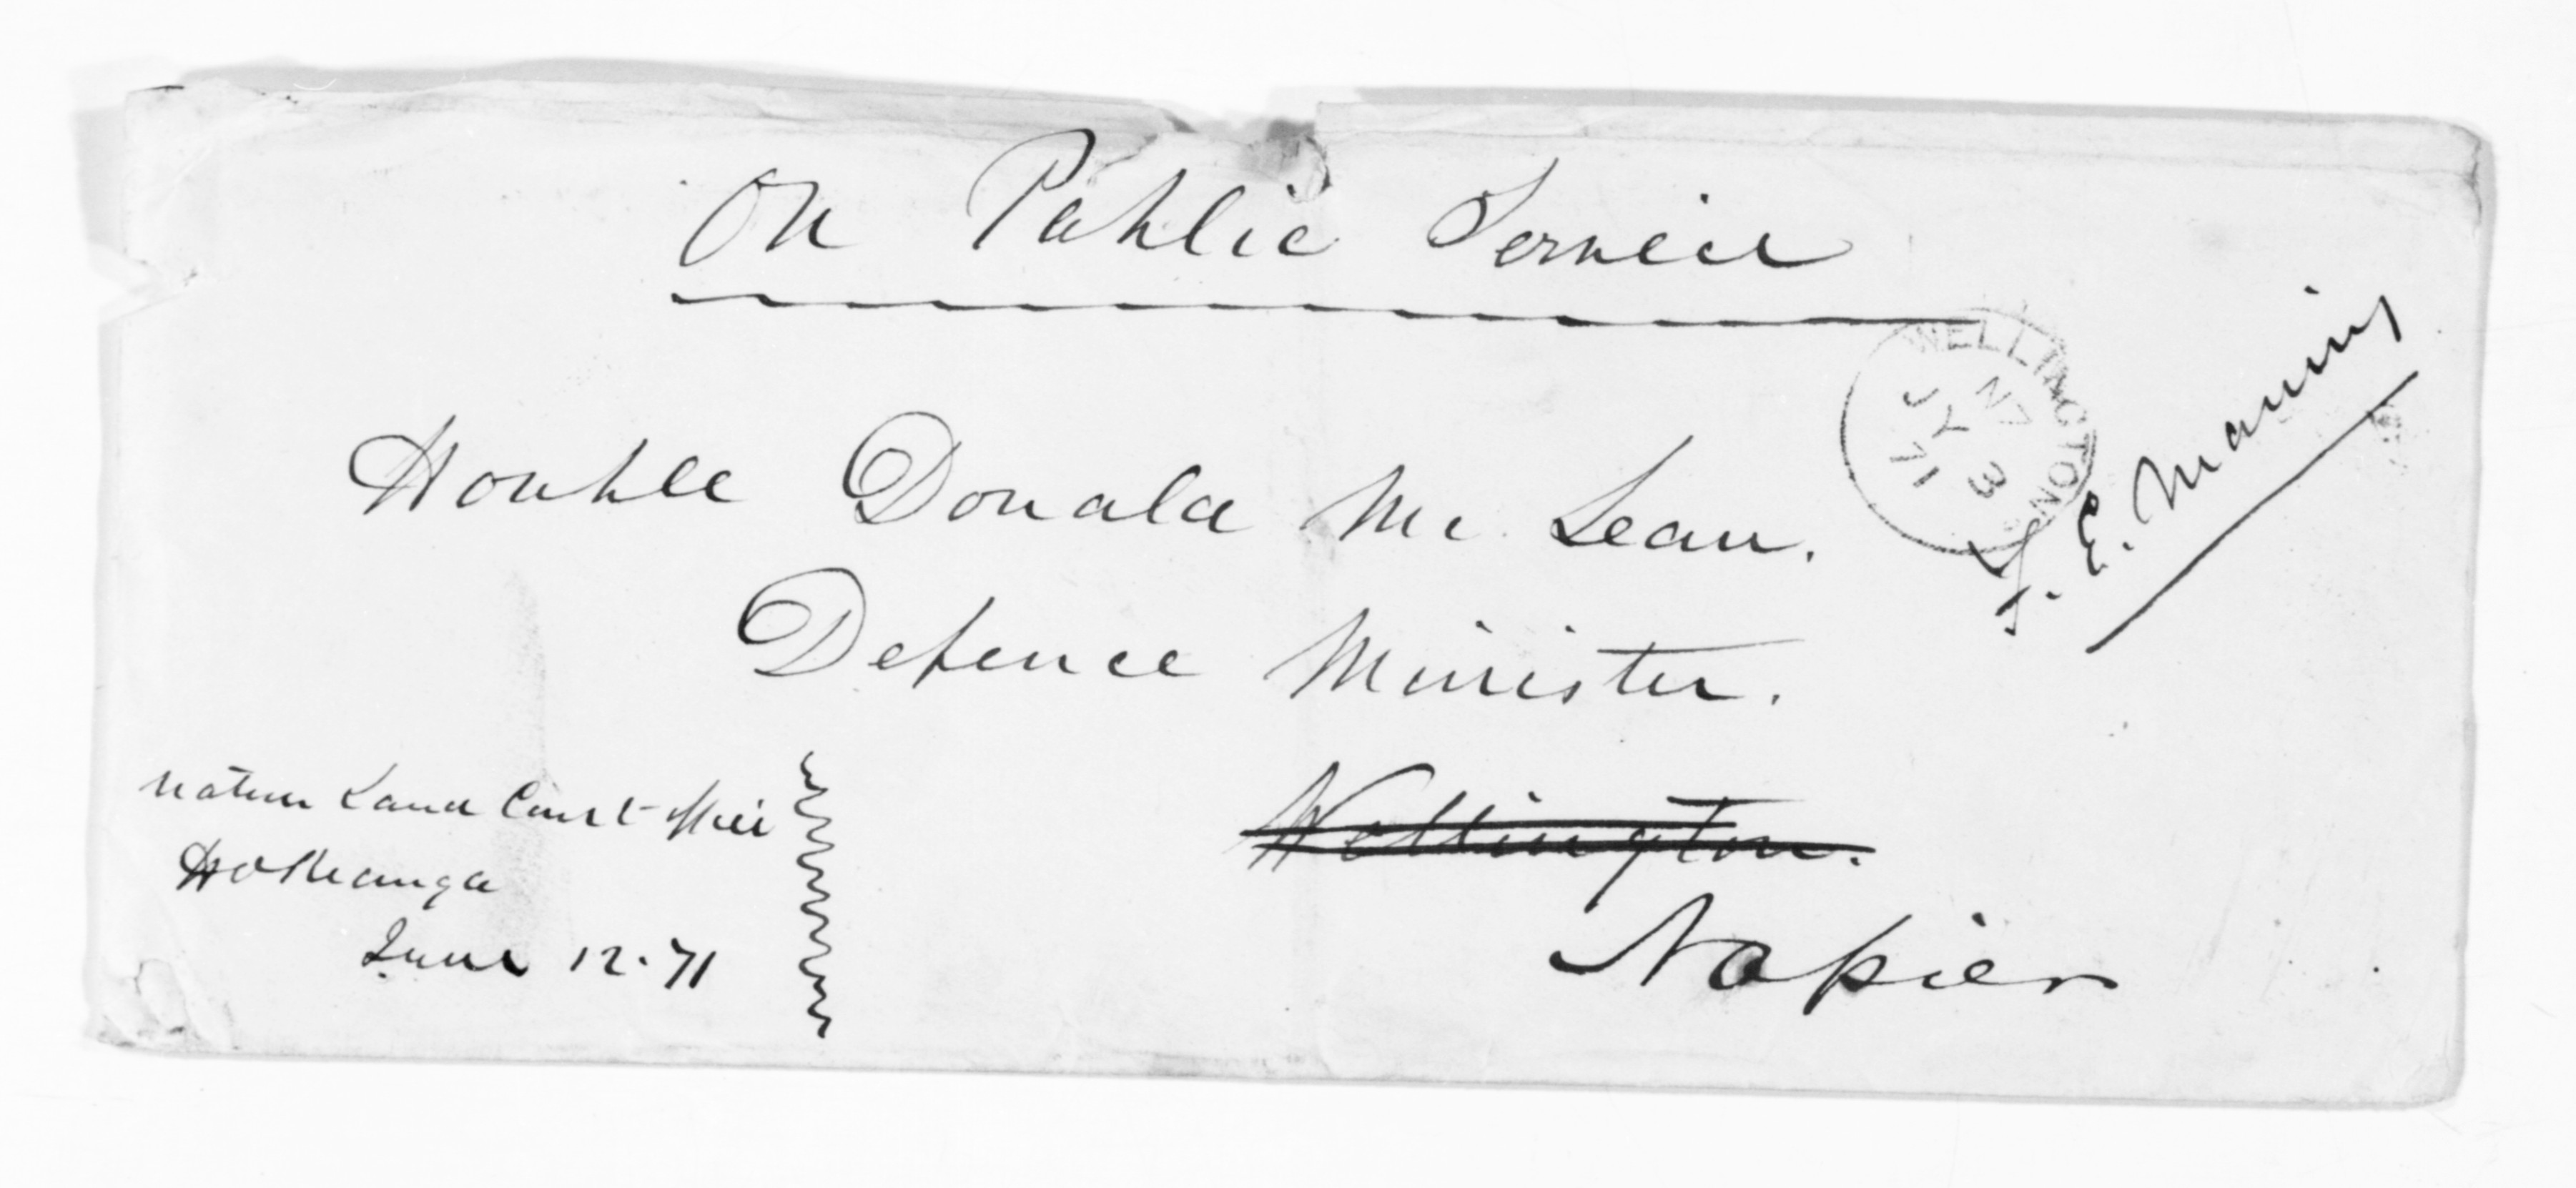 On Public Service
WELLINGTON
NZ
JY 3
71
F. E. Maning
Honble Donald Mc Lean.
Defence Minister.
Wellington.
Napier
Native Land Court Office
Hokianga
June 12. 71